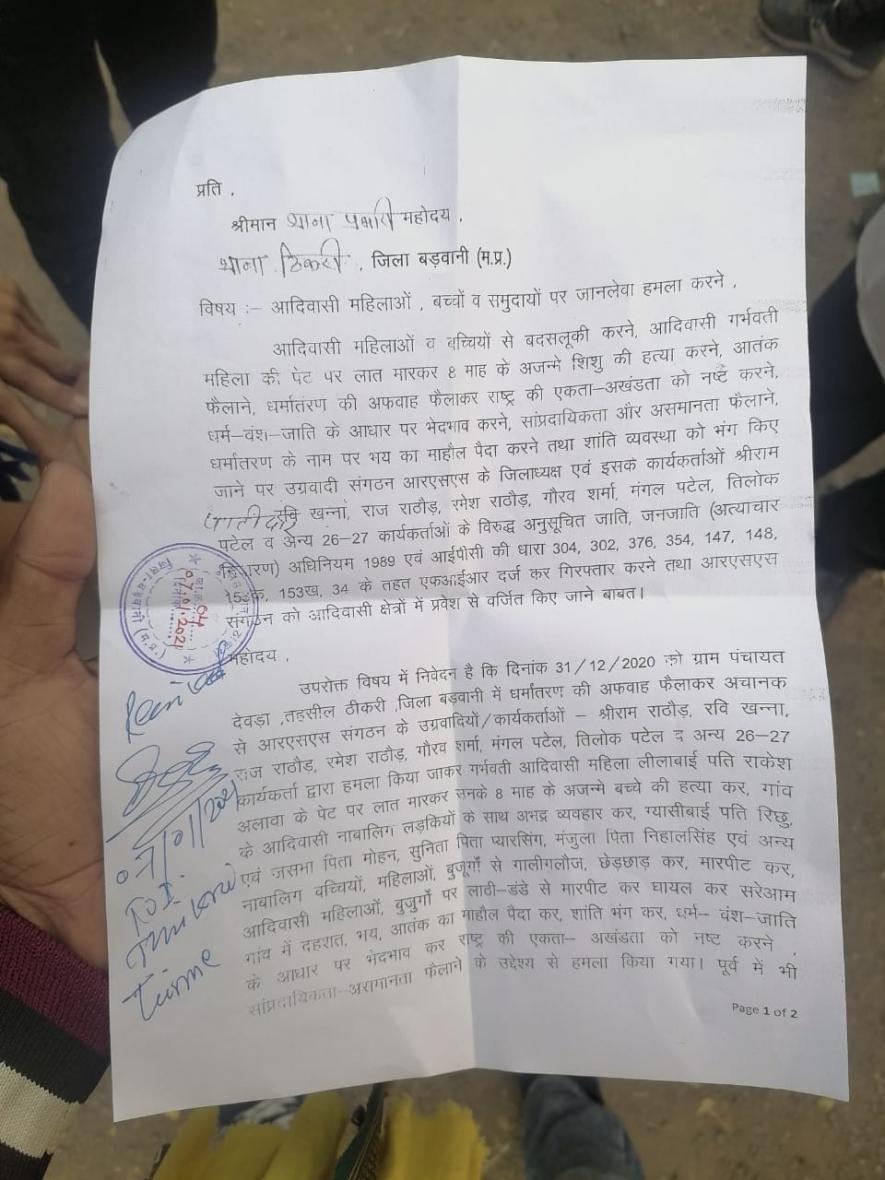 प्रति ,
श्रीमान थाना प्रभारी महोदय ,
थाना ठिकरी , जिला बड़वानी (म.प्र.)
विषय :– आदिवासी महिलाओं , बच्चों व समुदायों पर जानलेवा हमला करने ,
आदिवासी महिलाओं व बच्चियों से बदसलूकी करने, आदिवासी गर्भवती
महिला की पेट पर लात मारकर 8 माह के अजन्मे शिशु की हत्या करने, आतंक
फैलाने, धर्मातंरण की अफवाह फैलाकर राष्ट्र की एकता–अखंडता को नष्ट करने,
धर्म–वंश–जाति के आधार पर भेदभाव करने, सांप्रदायिकता और असमानता फैलाने,
धर्मातरण के नाम पर भय का माहौल पैदा करने तथा शांति व्यवस्था को भंग किए
जाने पर उग्रवादी संगठन आरएसएस के जिलाध्यक्ष एवं इसके कार्यकर्ताओं श्रीराम
रवि खन्ना, राज राठौड़, रमेश राठौड़, गौरव शर्मा, मंगल पटेल, तिलोक
पटेल व अन्य 26-27 कार्यकर्ताओं के विरुद्ध अनुसूचित जाति, जनजाति (अत्याचार
अधिनियम 1989 एवं आईपीसी की धारा 304, 302, 376, 354, 147, 148,
153क, 153ख, 34 के तहत एफआईआर दर्ज कर गिरफ्तार करने तथा आरएसएस
संगठन को आदिवासी क्षेत्रों में प्रवेश से वर्जित किए जाने बाबत।
महोदय ,
उपरोक्त विषय में निवेदन है कि दिनांक 31/12/2020 को ग्राम पंचायत
देवड़ा ,तहसील ठीकरी ,जिला बड़वानी में धर्मांतरण की अफवाह फैलाकर अचानक
से आरएसएस संगठन के उग्रवादियों/कार्यकर्ताओं – श्रीराम राठौड़, रवि खन्ना,
राज राठौड़, रमेश राठौड़, गौरव शर्मा, मंगल पटेल, तिलोक पटेल व अन्य 26-27
कार्यकर्ता द्वारा हमला किया जाकर गर्भवती आदिवासी महिला लीलाबाई पति राकेश
अलावा के पेट पर लात मारकर उनके 8 माह के अजन्मे बच्चे की हत्या कर, गांव
के आदिवासी नाबालिग लड़कियों के साथ अभद्र व्यवहार कर, ग्यासीबाई पति रिछु,
एवं जसभा पिता मोहन, सुनिता पिता प्यारसिंग, मंजुला पिता निहालसिंह एवं अन्य
नाबालिग बच्चियों, महिलाओं, बुजूर्गों से गालीगलौज, छेड़छाड़ कर, मारपीट कर,
आदिवासी महिलाओं, बुजुर्गों पर लाठी-डंडे से मारपीट कर घायल कर सरेआम
गांव में दहशत, भय, आतंक का माहौल पैदा कर, शांति भंग कर, धर्म– वंश–जाति
के आधार पर भेदभाव कर राष्ट्र की एकता– अखंडता को नष्ट करने
सांप्रदायिकता–असमानता फैलाने के उद्देश्य से हमला किया गया। पूर्व में भी
Page 1 of 2